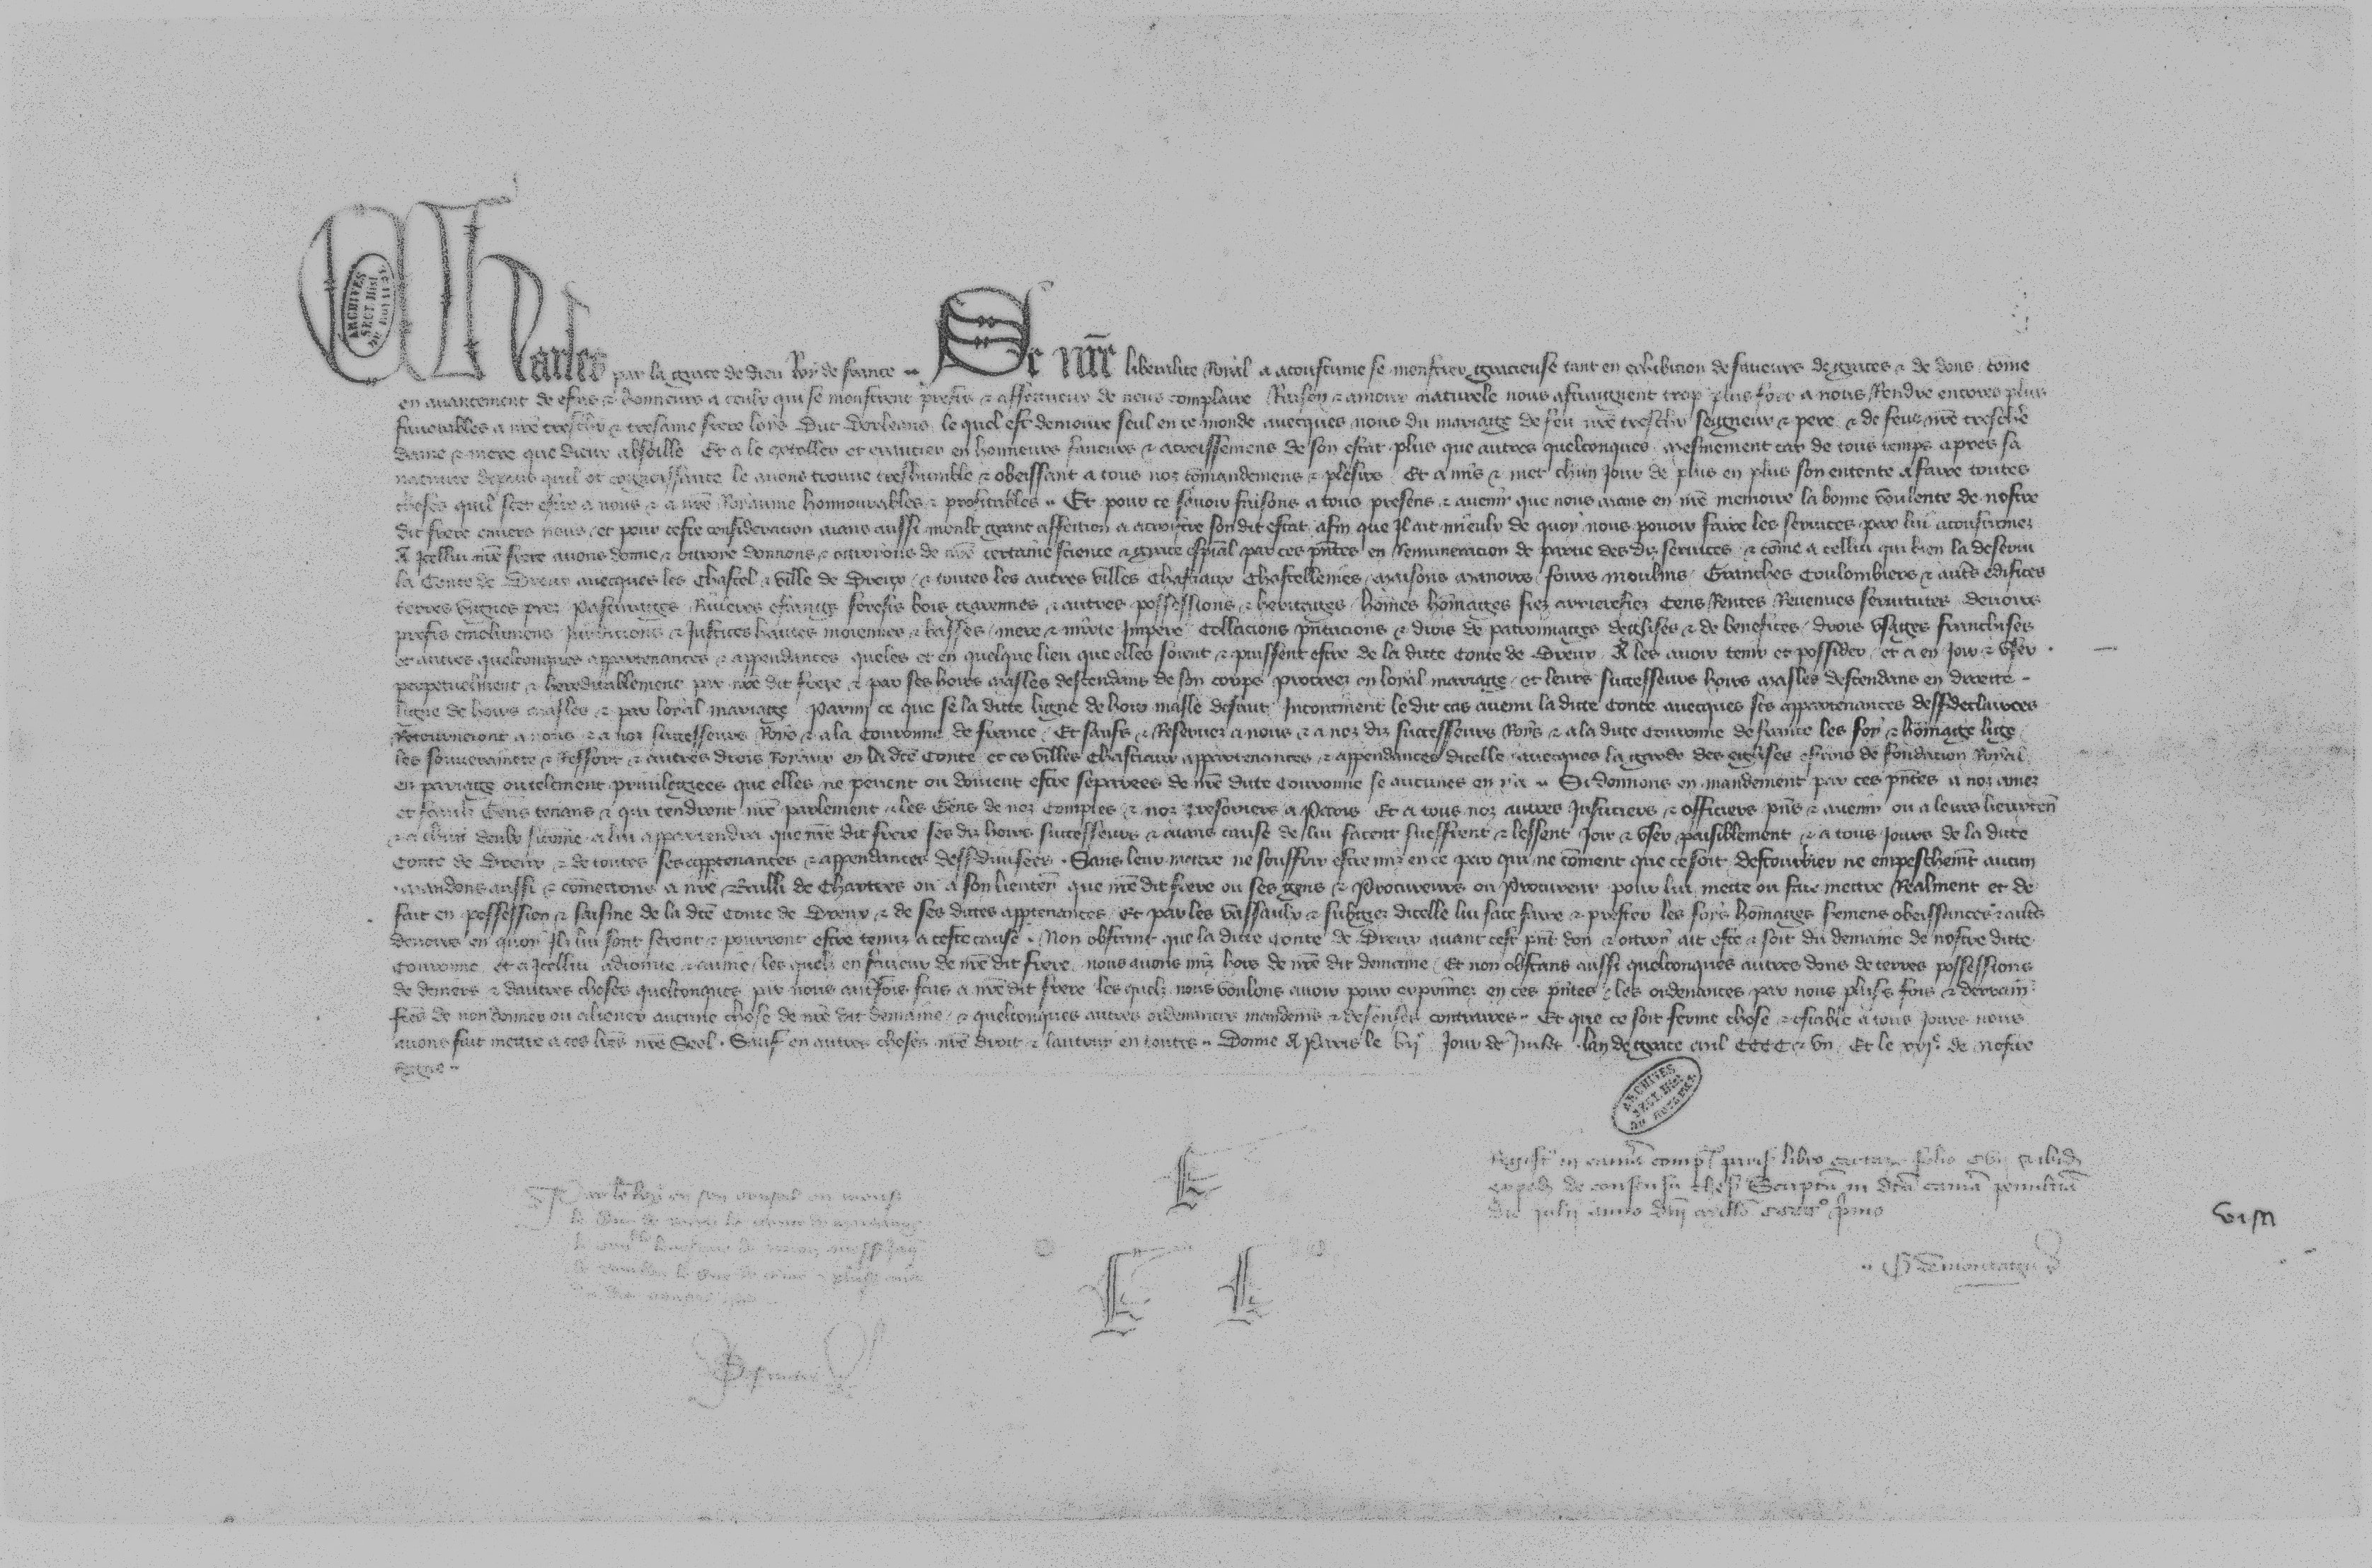 Charles par la grace de dieu Roy de france .. Se nre liberalite Royal a acoustume se monstrer gracieuse tant en exhibicion de faveurs de graces & de dons come
en avancement de estas & honneurs a ceulx qui se monstrent prests & affectueux de nous complaire Raison & amour naturele nous astraignent trop plus fort a nous Rendre encores plus
favorables a nre treschier & tresame frere loys Duc Dorleans le quel est demoure seul en ce monde avecques nous du mariage de feu nre treschier seigneur & pere & de feue nre treschere
dame & mere que dieux absoille Et a le extoller et exaucier en honneurs faveurs & acroissemens de son estat plus que autres quelconques mesmement car de tous temps apres sa
nativite depuis quil ot cognoissance le avons trouve treshumble & obeissant a tous noz comandemens & plesirs Et a mis & met chun Jour de plus en plus son entente a faire toutes
choses quil scet estre a nous & a nre Royaume honnourables & proffitables .. Et pour ce savoir faisons a tous presens & avenir que nous aians en nre memoire la bonne voulente de nostre
dit frere envers nous et pour ceste consideracion aians aussi moult grant affeccion a acroitre son dit estat afin que Il ait mieulx de quoy nous pouoir faire les services par lui acoustumez
A Icellui nre frere avons donne & ottroye donnons & ottroions de nre certaine science & grace espial par ces pntes en Remuneracion de partie des diz services & come a cellui qui bien la desservi
la Conte de Dreux avecques les Chastel & ville de Dreux & toutes les autres villes Chasteaux Chastellenies maisons manoirs fours moulins Granches Coulombiers & autres edifices
terres vignes prez Pasturages Rivieres estangs forests bois garennes & autres possessions & heritages homes homages fiez arrierefiez Cens Rentes Revenues servitutes devoirs
profis emolumens Juridicions & Justices hautes moiennes & basses mere & mixte Impere Collacions pntacions & drois de patronnages deglises & de benefices drois usages franchises
et autres quelconques appartenances & appendances queles et en quelque lieu que elles soient & puissent estre de la ditte Conte de Dreux A les avoir tenir et possider et a en Joir & user
perpetuelment & hereditablement par nre dit frere & par ses hoirs masles descendans de son corps procreez en loyal mariage et leurs successeurs hoirs masles descendans en directe
ligne de hoirs masles & par loyal mariage Parmi ce que se la ditte ligne de hoir masle defaut Incontinent le dit cas avenu la ditte Conte avecques ses appartenances dessdeclairees
Retourneront a nous & a noz successeurs Roys & a la Couronne de france Et saufs & Reservez a nous & a noz diz successeurs Roys & a la dite Couronne de france les foy & homage lige
les souverainete & Ressort & autres drois Royaux en la dte Conte et es villes Chasteaux appartenances & appendances dicelle avecques la garde des eglises estans de fondacion Royal
en pariage ou telement privilegiees que elles ne pevent ou doivent estre separees de nre dite Couronne se aucunes en y a .. Si donnons en mandement par ces pntes a noz amez
et feaulx Gens tenans & qui tendront nre parlement & les Gens de noz Comptes & noz Tresoriers a Paris Et a tous noz autres Justiciers & officiers pns & avenir ou a leurs lieuxten
& a chun deulx sicome a lui appartendra que nre dit frere ses diz hoirs successeurs & aians cause de lui facent sueffrent & lessent Joir & user paisiblement & a tous Jours de la ditte
Conte de Dreux & de toutes ses apptenances & appendances dessdivisees . Sans leur mettre ne souffrir estre mis en ce par qui ne coment que ce soit destourbier ne empeschemt aucun
mandons aussi & comettons a nre Bailli de Chartres ou a son lieuten que nre dit frere ou ses gens & Procureurs ou Procureur pour lui mette ou face mettre Realment et de
fait en possession & saisine de la dte Conte de Dreux & de ses dittes apptenances Et par les vassaulx & subgiez dicelle lui face faire & prester les foys homages sermens obeissances & autres
devoirs en quoy Ilz lui sont seront & pourront estre tenuz a ceste cause . Non obstant que la ditte Conte de Dreux avant cest pnt don & ottroy ait este & soit du demaine de nostre ditte
Couronne et a Icellui adiointe & unie les quelz en faveur de nre dit frere nous avons mis hors de nre dit demaine Et non obstans aussi quelconques autres dons de terres possessions
de deniers & dautres choses quelconques par nous autrefois fais a nre dit frere les quelz nous voulons avoir pour exprimez en ces pntes & les ordenances par nous plusrs fois & derrain
fces de non donner ou aliener aucune chose de nre dit demaine & quelconques autres ordenances mandemens & defenses contraires .. Et que ce soit ferme chose & estable a tous Jours nous
avons fait mettre a ces lres nre Seel . Sauf en autres choses nre droit & lautrui en toutes .. Donne A Paris le Jour de Juillet lan de grace mil CCCC & un Et le xxje de Nostre
Regne ..
ARCHIVES
SECT. Hist.
Par le Roy en son conseil ou mons
Regist in camera compotorum paris libro cartarum folio & ibid
exped de consensu thes Scriptum in dta camera penultima
die julii anno dni millo cccc° primo
visa